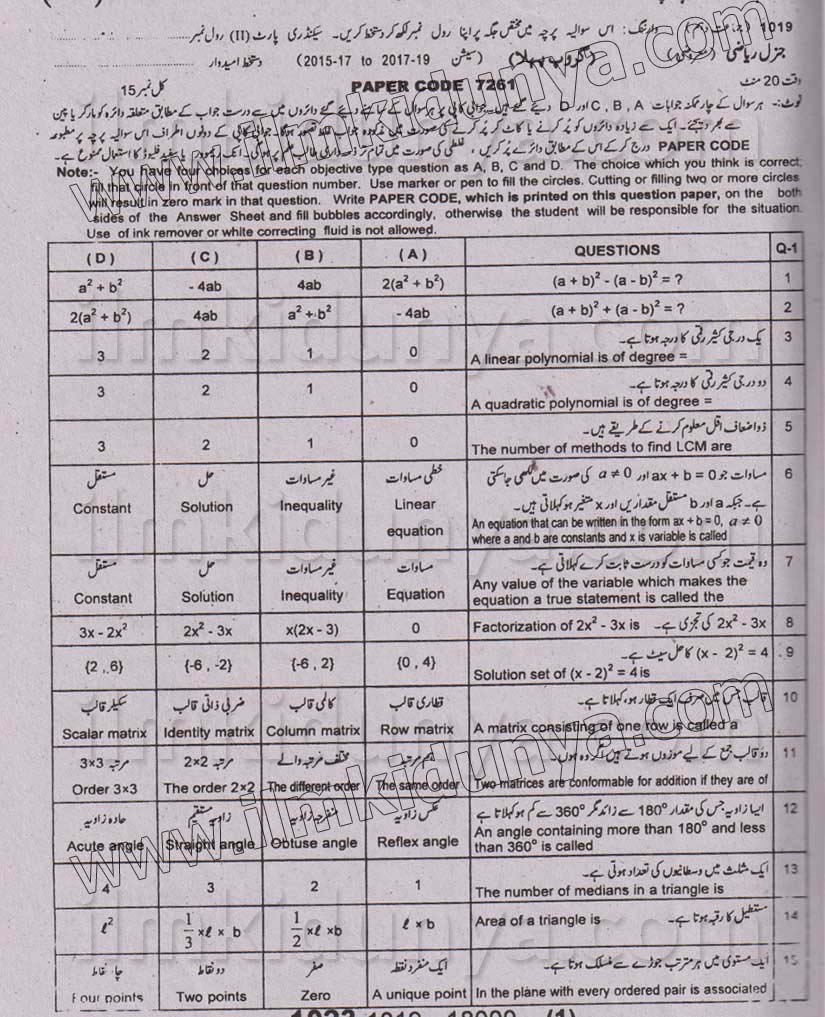 1019 (جماعت دہم) وارننگ: اس سوالیہ پرچہ میں مختص جگہ پر اپنا رول نمبر لکھ کر دستخط کریں۔ سیکنڈری پارٹ (II) رول نمبر
جنرل ریاضی (معروضی) (گروپ پہلا) (سیشن 2015-17 to 2017-19) دستخط امیدوار
وقت 20 منٹ PAPER CODE 7261 کل نمبر 15
نوٹ:- ہر سوال کے چار ممکنہ جوابات C , B , A اور D دیئے گئے ہیں۔ جوابی کاپی پر ہر سوال کے سامنے دیئے گئے دائروں میں سے درست جواب کے مطابق متعلقہ دائرہ کو مارکر یا پین
سے بھر دیجئے۔ ایک سے زیادہ دائروں کو پُر کرنے یا کاٹ کر پُر کرنے کی صورت میں مذکورہ جواب غلط تصور ہوگا۔ جوابی کاپی کے دونوں اطراف اس سوالیہ پرچہ پر مطبوعہ
PAPER CODE درج کر کے اس کے مطابق دائرے پُر کریں، غلطی کی صورت میں تمام تر ذمہ داری طالب علم پر ہوگی۔ انک ریموور یا سفید فلیوڈ کا استعمال ممنوع ہے۔
Note:- You have four choices for each objective type question as A, B, C and D. The choice which you think is correct;
fill that circle in front of that question number. Use marker or pen to fill the circles. Cutting or filling two or more circles
will result in zero mark in that question. Write PAPER CODE, which is printed on this question paper, on the both
sides of the Answer Sheet and fill bubbles accordingly, otherwise the student will be responsible for the situation.
Use of ink remover or white correcting fluid is not allowed.
( D ) ( C ) ( B ) ( A ) QUESTIONS Q-1
a² + b² - 4ab 4ab 2(a² + b²) (a + b)² - (a - b)² = ? 1
2(a² + b²) 4ab a² + b² - 4ab (a + b)² + (a - b)² = ? 2
یک درجی کثیر رقمی کا درجہ ہوتا ہے۔ 3
3 2 1 0 A linear polynomial is of degree =
دو درجی کثیر رقمی کا درجہ ہوتا ہے۔ 4
3 2 1 0 A quadratic polynomial is of degree =
ذواضعاف اقل معلوم کرنے کے طریقے ہیں۔ 5
3 2 1 0 The number of methods to find LCM are
مستقل حل غیر مساوات خطی مساوات مساوات جو ax + b = 0 اور a ≠ 0 کی صورت میں لکھی جا سکتی 6
Constant Solution Inequality Linear ہے۔ جبکہ a اور b مستقل مقداریں اور x متغیر ہو کہلاتی ہیں۔
equation An equation that can be written in the form ax + b = 0, a ≠ 0
where a and b are constants and x is variable is called
مستقل حل غیر مساوات مساوات وہ قیمت جو کسی مساوات کو درست ثابت کرے کہلاتی ہے۔ 7
Constant Solution Inequality Equation Any value of the variable which makes the
equation a true statement is called the
3x - 2x² 2x² - 3x x(2x - 3) 0 Factorization of 2x² - 3x is 2x² - 3x کی تجزی ہے۔ 8
{2 , 6} {-6 , -2} {-6 , 2} {0 , 4} (x - 2)² = 4 کا حل سیٹ ہے۔ 9
Solution set of (x - 2)² = 4 is
سکیلر قالب ضربی ذاتی قالب کالمی قالب قطاری قالب قالب جس میں صرف ایک قطار ہو، کہلاتا ہے۔ 10
Scalar matrix Identity matrix Column matrix Row matrix A matrix consisting of one row is called a
مرتبہ 3×3 مرتبہ 2×2 مختلف مرتبہ والے دو قالب جمع کے لیے موزوں ہوتے ہیں اگر وہ ہوں۔ 11
Order 3×3 The order 2×2 The different order The same order Two matrices are conformable for addition if they are of
حادہ زاویہ زاویہ مستقیم منفرجہ زاویہ عکس زاویہ ایسا زاویہ جس کی مقدار 180° سے زائد مگر 360° سے کم ہو کہلاتا ہے 12
Acute angle Straight angle Obtuse angle Reflex angle An angle containing more than 180° and less
than 360° is called
ایک مثلث میں وسطانیوں کی تعداد ہوتی ہے۔ 13
4 3 2 1 The number of medians in a triangle is
ℓ² 1/3 ×ℓ × b 1/2 ×ℓ ×b ℓ × b Area of a triangle is مستطیل کا رقبہ ہوتا ہے۔ 14
چار نقاط دو نقاط صفر ایک منفرد نقطہ ایک مستوی میں ہر مترتب جوڑے سے منسلک ہوتا ہے۔ 15
Four points Two points Zero A unique point In the plane with every ordered pair is associated
1019 18000 (1)
www.ilmkidunya.com